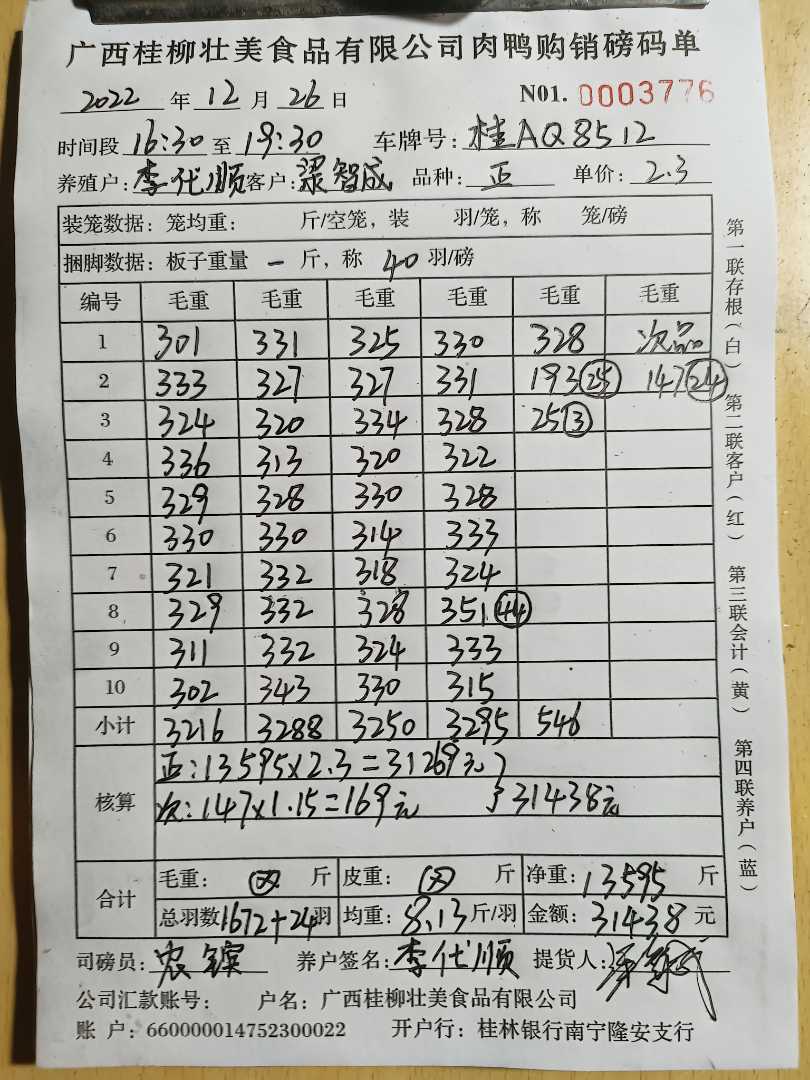 广西桂柳壮美食品有限公司肉鸭购销磅码单
2022 年 12 月 26 日 N01. 0003776
时间段 16:30 至 19:30 车牌号: 桂AQ8512
养殖户: 李代顺 客户: 梁智成 品种: 正 单价: 2.3
装笼数据: 笼均重: 斤/空笼, 装 羽/笼, 称 笼/磅
捆脚数据: 板子重量 一 斤, 称 40 羽/磅
编号 毛重 毛重 毛重 毛重 毛重 毛重
1 301 331 325 330 328 次品
2 333 327 327 331 193 25 147 24
3 324 320 334 328 25 3
4 336 313 320 322
5 329 328 330 328
6 330 330 314 333
7 321 332 318 324
8 329 332 328 351 44
9 311 332 324 333
10 302 343 330 315
小计 3216 3288 3250 3295 546
核算
正: 13595×2.3=31269元
次: 147×1.15=169元 31438元
合计
毛重: 斤 皮重: 斤 净重: 13595 斤
总羽数 1672+24 羽 均重: 8.13 斤/羽 金额: 31438 元
司磅员: 农镔 养户签名: 李代顺 提货人:
公司汇款账号: 户名: 广西桂柳壮美食品有限公司
账 户: 660000014752300022 开户行: 桂林银行南宁隆安支行
第一联存根(白)
第二联客户(红)
第三联会计(黄)
第四联养户(蓝)